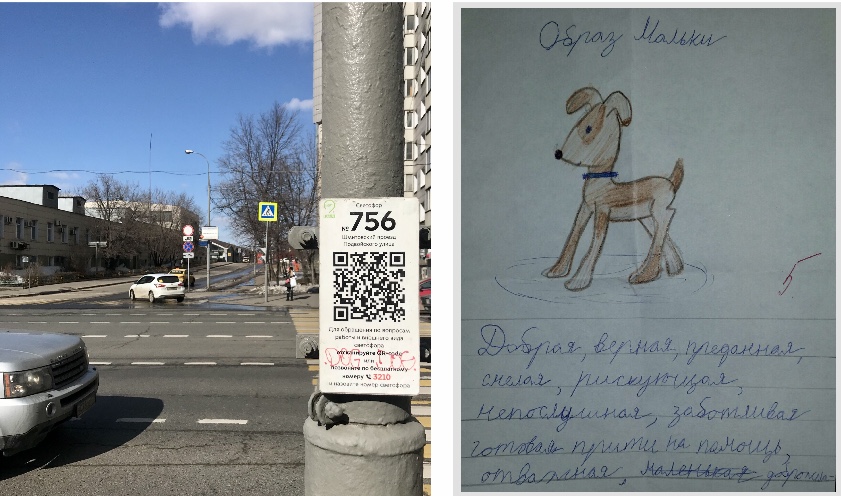 Светофор
№ 756
Шмитовский проезд
Подвойского улица
Для обращения по вопросам
работы и внешнего вида
светофора
отсканируйте QR-code
или
позвоните по бесплатному
номеру 3210
и назовите номер светофора
Образ Мальки
5.
Добрая, верная, преданная
смелая, рискующая,
непослушная, заботливая
готовая прийти на помощь,
отважная, маленькая